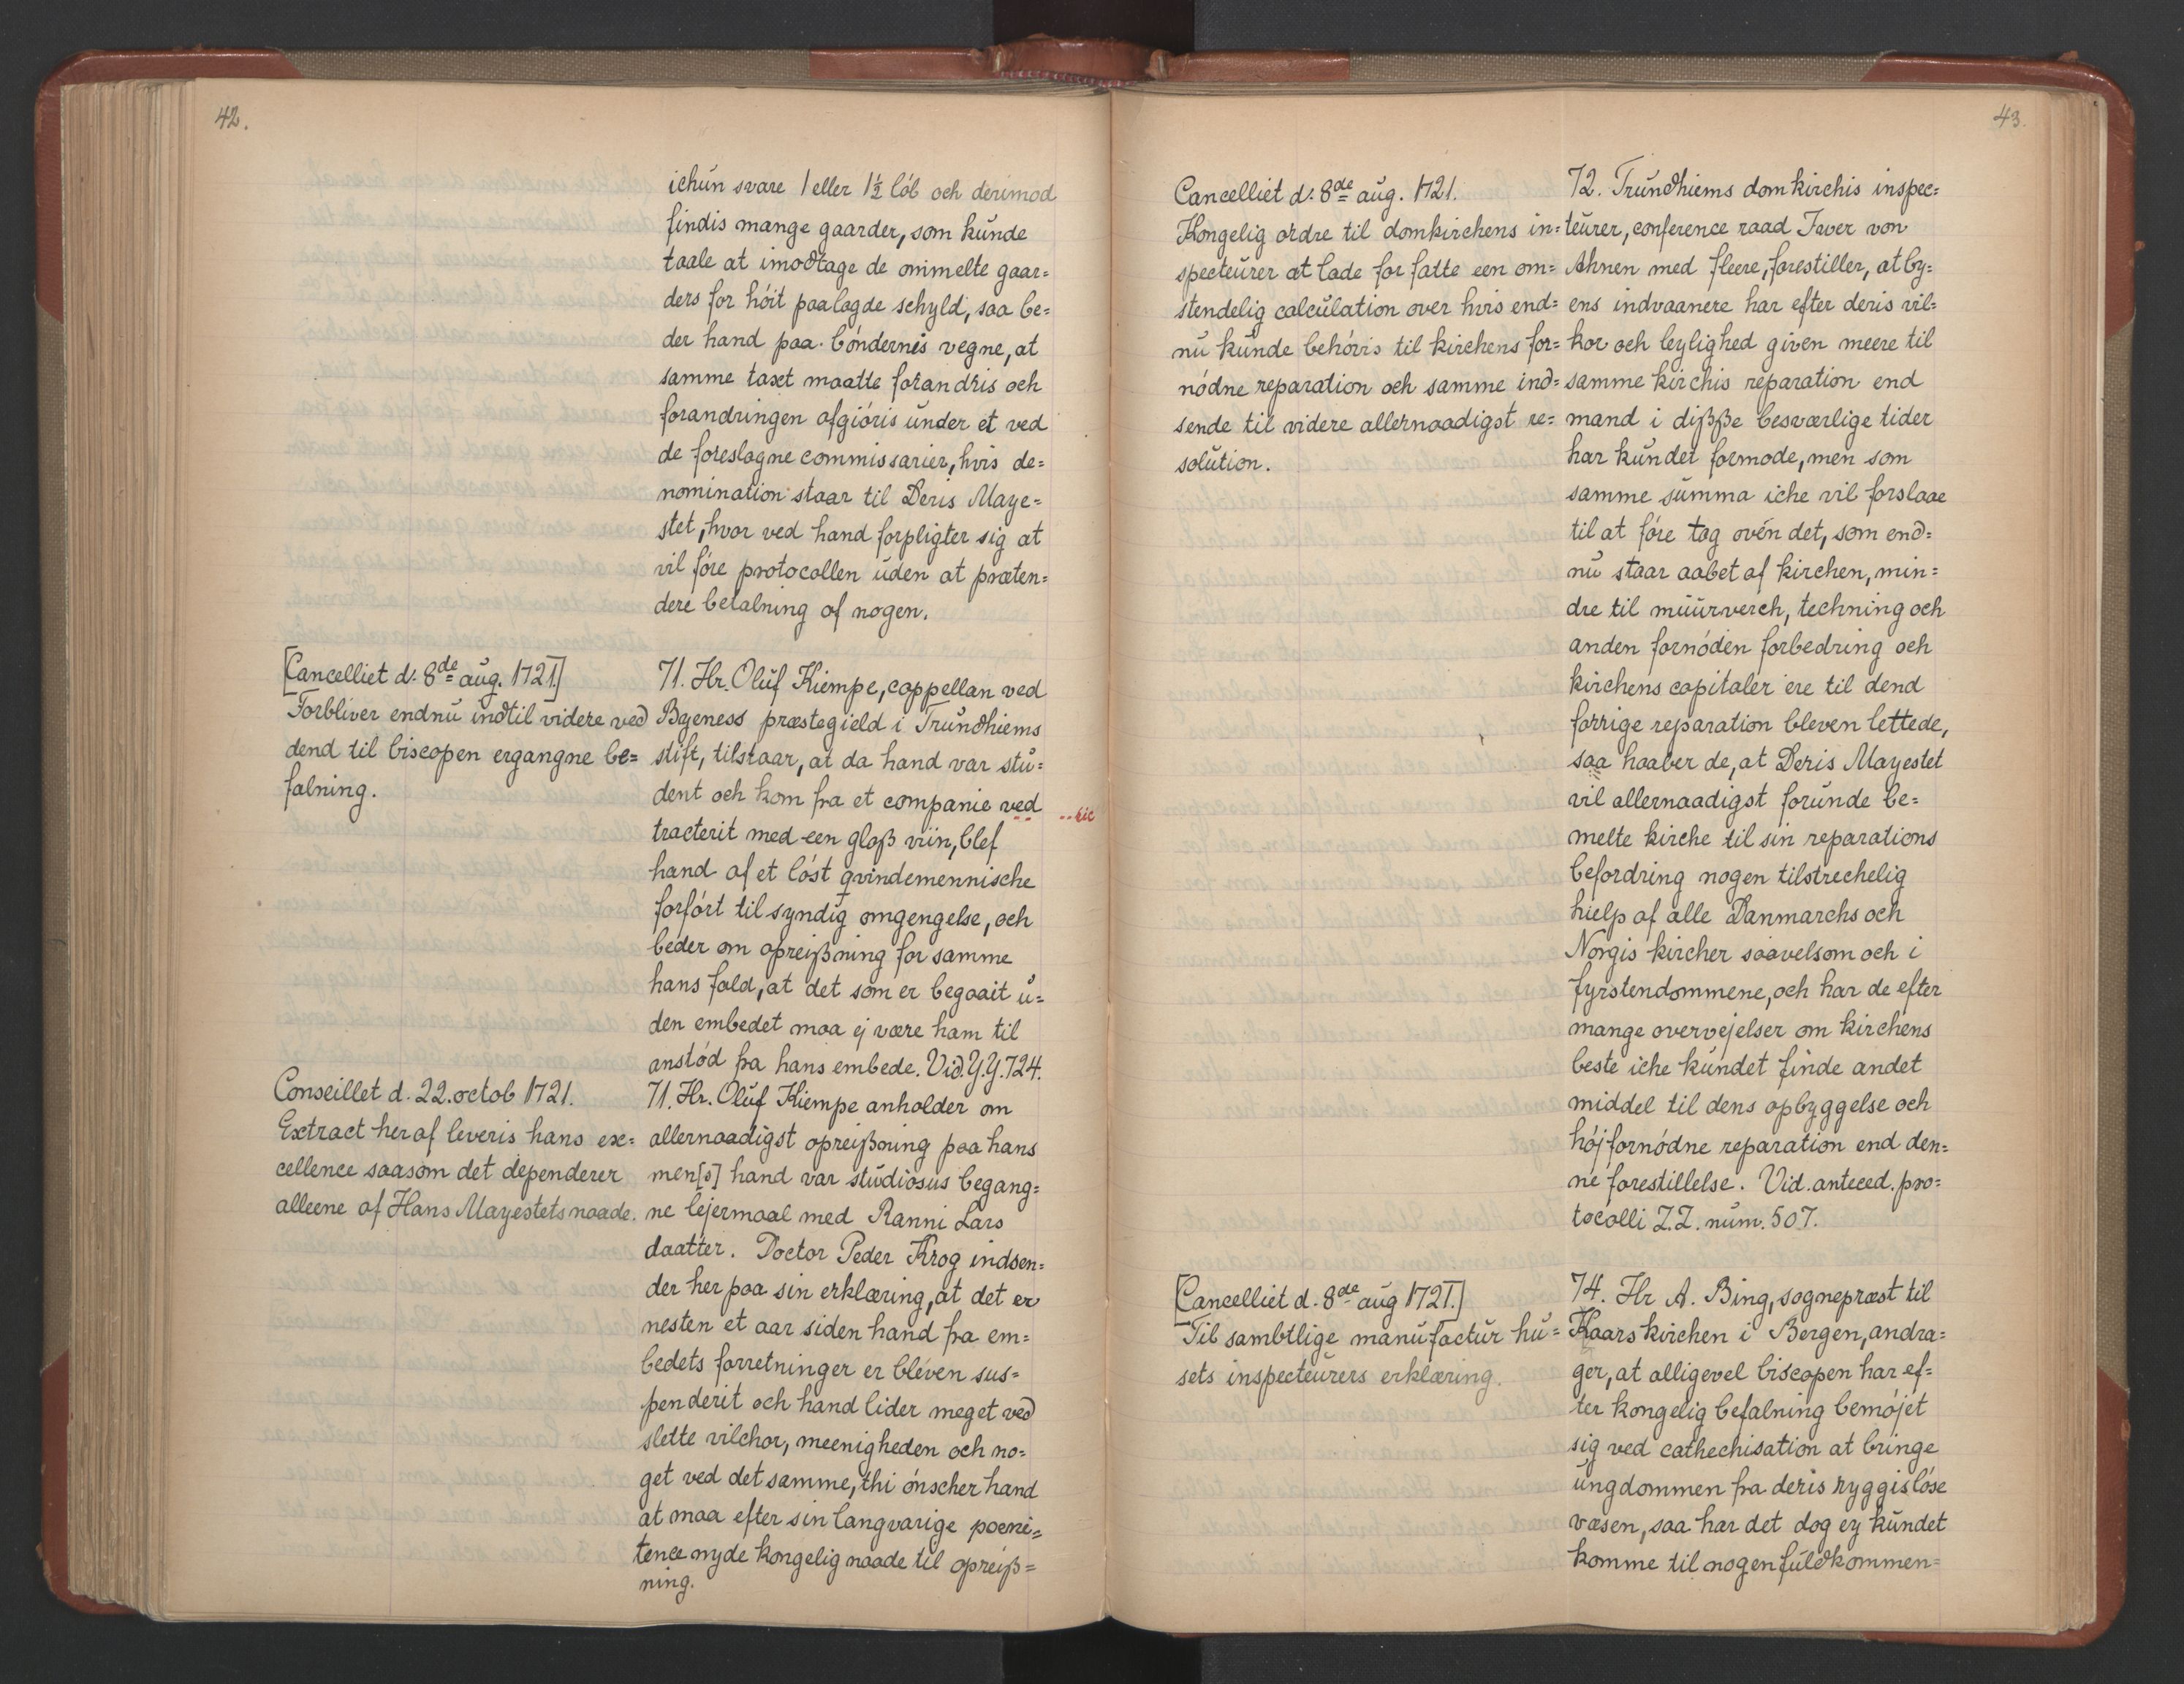 42.
ichun svare 1 eller 1½ löb och derimod
findis mange gaarder, som kunde
taale at imodtage de ommelte gaar=
ders for höit paalagde schyld, saa be=
der hand paa böndernis vegne, at
samme taxt maatte forandris och
forandringen afgiöris under et ved
de foreslagne commissarier, hvis de=
nomination staar til Deris Maye=
stet, hvor ved hand forpligter sig at
vil före protocollen uden at præten=
dere betalning af nogen.
[Cancelliet d. 8de aug. 1721.]
Forbliver endnu indtil videre ved
dend til biscopen ergangne be=
falning.
71. Hr. Oluf Kiempe, cappellan ved
Byeness præstegield i Trundhiems
stift, tilstaar, at da hand var stu=
dent och kom fra et companie ved
..sic
tracterit med een glaß viin, blef
hand af et löst qvindemennische
forfört til syndig omgengelse, och
beder om opreißning for samme
hans fald, at det som er begaait u=
den embedet maa ej være ham til
anstöd fra hans embede. Vid. Y.Y. 724.
Conseillet d. 22. octob 1721.
Extract heraf leveris hans ex=
cellence saasom det dependerer
alleene af Hans Mayestets naade.
71. Hr. Oluf Kiempe anholder om
allernaadigst opreißning paa hans
men[s] hand var studiosus begang=
ne lejermaal med Ranni Lars
daatter. Doctor Peder Krog indsen=
der her paa sin erklæring, at det er
nesten et aar siden hand fra em=
bedets forretninger er bleven sus=
penderit och hand lider meget ved
slette vilchor, meenigheden och no=
get ved det samme, thi önscher hand
at maa efter sin langvarige poeni=
tence nyde kongelig naade til opreiß=
ning.
43.
Cancelliet d. 8de aug. 1721.
Kongelig ordre til domkirchens in=
specteurer at lade for fatte een om=
stendelig calculation over hvis end=
nu kunde behövis til kirchens for=
nödne reparation och samme ind=
sende til videre allernaadigst re=
solution.
72. Trundhiems domkirchis inspec=
teurer, conference raad Iver von
Ahnen med fleere, forestiller, at by=
ens indvaanere har efter deris vil=
kor och leylighed given meere til
samme kirchis reparation end
mand i dißße besværlige tider
har kundet formode, men som
samme summa iche vil forslaae
til at före tag oven det, som end=
nu staar aabet af kirchen, min=
dre til muurverch, techning och
anden fornöden forbedring och
kirchens capitaler ere til dend
forrige reparation bleven lettede,
saa haaber de, at Deris Mayestet
vil allernaadigst forunde be=
melte kirche til sin reparations
befordring nogen tilstrechelig
hielp af alle Danmarchs och
Norgis kircher saavelsom och i
fyrstendommene, och har de efter
mange overvejelser om kirchens
beste iche kundet finde andet
middel til dens opbyggelse och
höjfornödne reparation end den=
ne forestillelse. Vid. anteced. pro=
tocolli Z.Z. num. 507.
[Cancelliet d. 8de aug 1721.]
Til sambtlige manufactur hu=
sets inspecteurers erklæring.
74. Hr A. Bing, sognepræst til
Kaars kirchen i Bergen, andra=
ger, at alligevel biscopen har ef=
ter kongelig befalning bemöjet
sig ved cathechisation at bringe
ungdommen fra deris ryggislöse
væsen, saa har det dog ey kundet
komme til nogen fuldkommen=